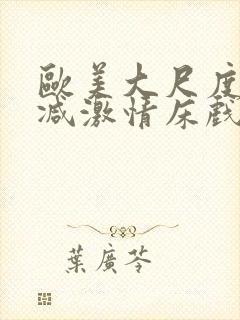 歐美大尺度
減激情床戲
葉廣芩